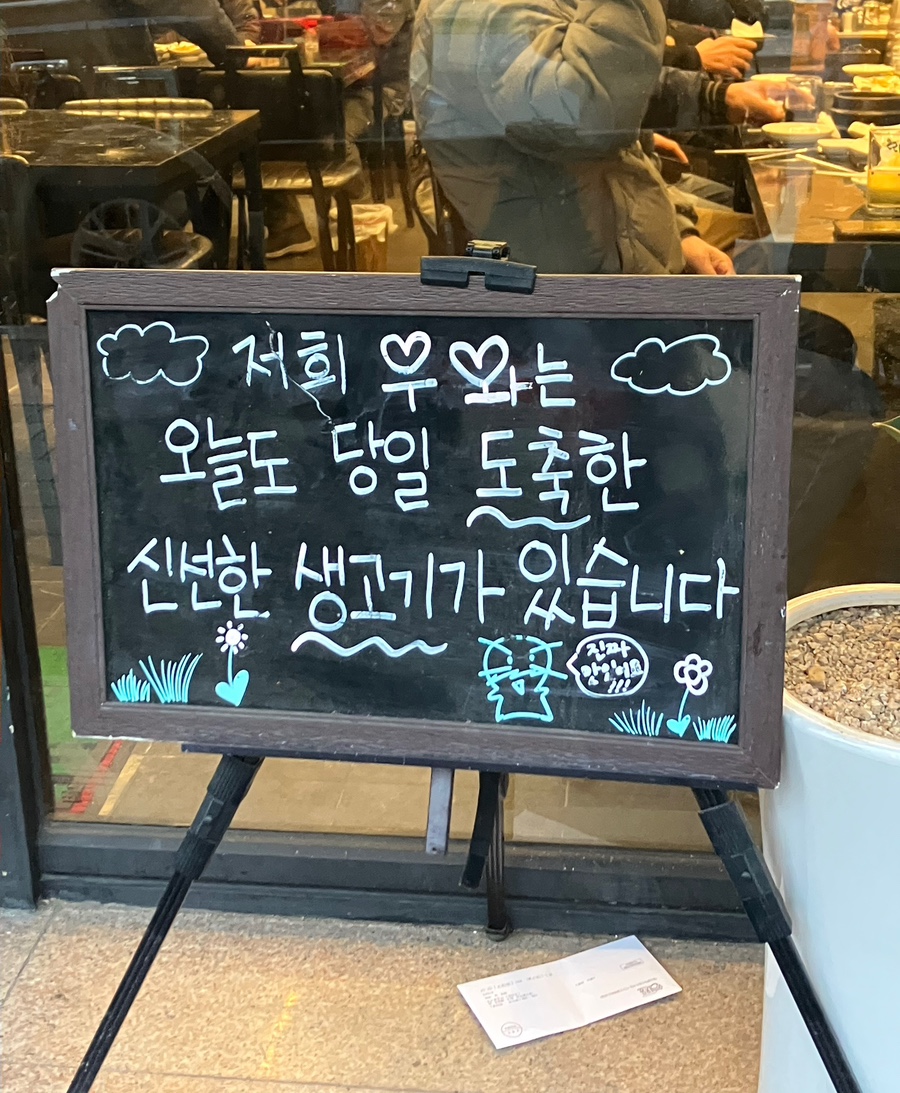 저희 우와는
오늘도 당일 도축한
신선한 생고기가 있습니다
진짜
맛있어요
!!!